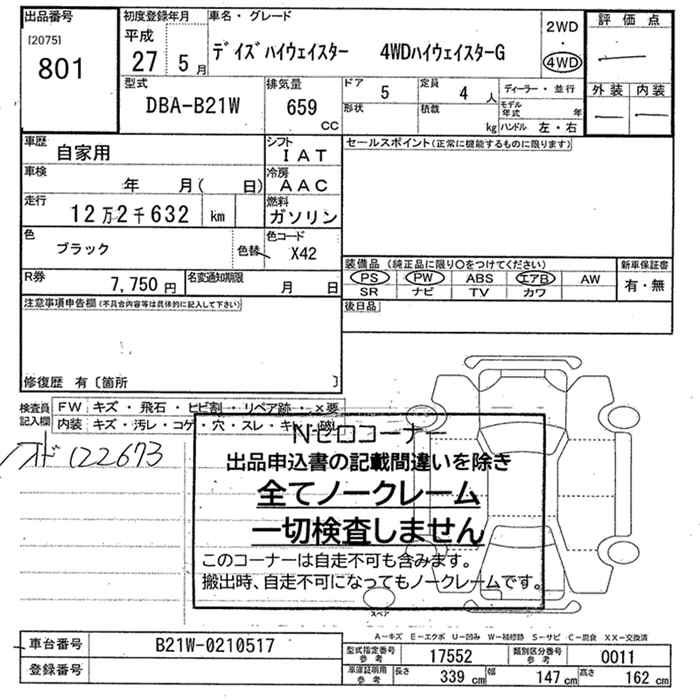 出品番号
[2075]
801
初度登録年月
平成
27 5月
車名・グレード
デイズハイウェイスター 4WDハイウェイスターG
2WD
・
4WD
評価点
―
外装 内装
― ―
型式
DBA-B21W
排気量
659
CC
ドア 5
定員 4人
形状
積載 kg
ディーラー・並行
モデル年式 年
ハンドル 左・右
車歴
自家用
シフト
IAT
車検
年 月( 日)
冷房
AAC
走行
12万2千632 km
燃料
ガソリン
色
ブラック
色替
色コード
X42
R券
7,750円
名変通知期限
月 日
セールスポイント(正常に機能するものに限ります)
装備品(純正品に限り○をつけてください)
PS PW ABS エアB AW
SR ナビ TV カワ
新車保証書
有・無
後日品
注意事項申告欄(不具合内容等は具体的に記入して下さい)
修復歴 有〔箇所 〕
検査員記入欄
FW キズ・飛石・ヒビ割・リペア跡・×要
内装 キズ・汚レ・コゲ・穴・スレ・キレ・破レ
122673
Nゼロコーナー
出品申込書の記載間違いを除き
全てノークレーム
一切検査しません
このコーナーは自走不可も含みます。
搬出時、自走不可になってもノークレームです。
スペア
A－キズ E－エクボ U－凹み W－補修跡 S－サビ C－腐食 XX－交換済
車台番号 B21W-0210517
登録番号
型式指定番号 参考 17552
類別区分番号 参考 0011
車庫証明用 参考 長さ 339cm 幅 147cm 高さ 162cm